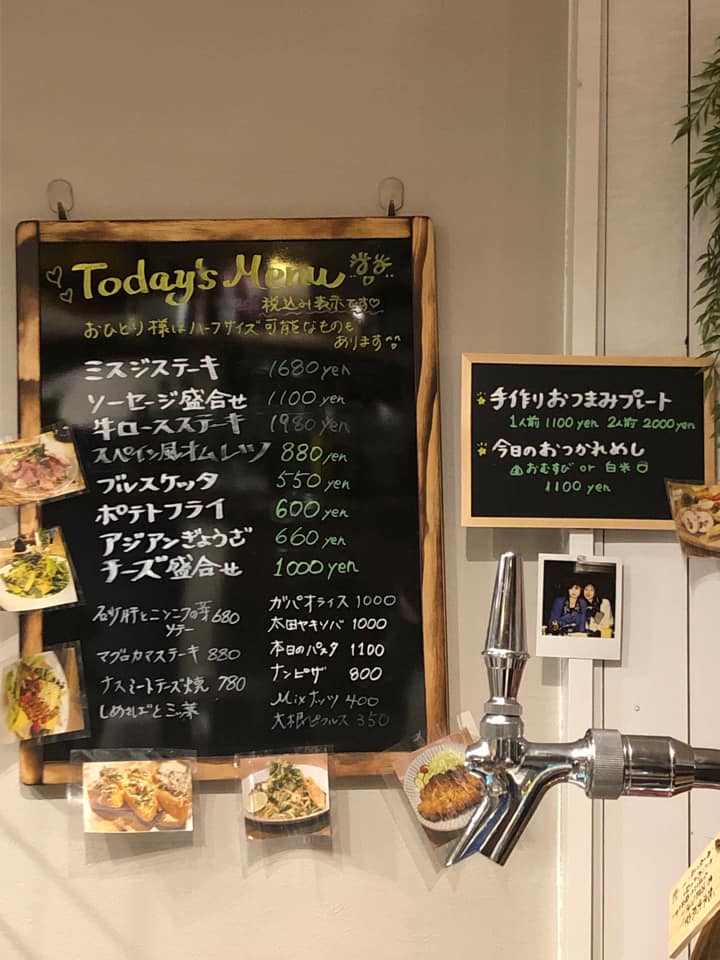 Today's Menu
税込み表示です♡
おひとり様はハーフサイズ可能なものも
あります
ミスジステーキ 1680 yen
ソーセージ盛合せ 1100 yen
牛ロースステーキ 1980 yen
スペイン風オムレツ 880 yen
ブルスケッタ 550 yen
ポテトフライ 600 yen
アジアンぎょうざ 660 yen
チーズ盛合せ 1000 yen
砂肝とニンニクの芽 680
ソテー
マグロカマステーキ 880
ナスミートチーズ焼 780
しめさばと三ツ葉
ガパオライス 1000
太田ヤキソバ 1000
本日のパスタ 1100
ナンピザ 800
Mixナッツ 400
大根ピクルス 350
手作りおつまみプレート
1人前 1100 yen 2人前 2000 yen
今日のおつかれめし
おむすび or 白米
1100 yen